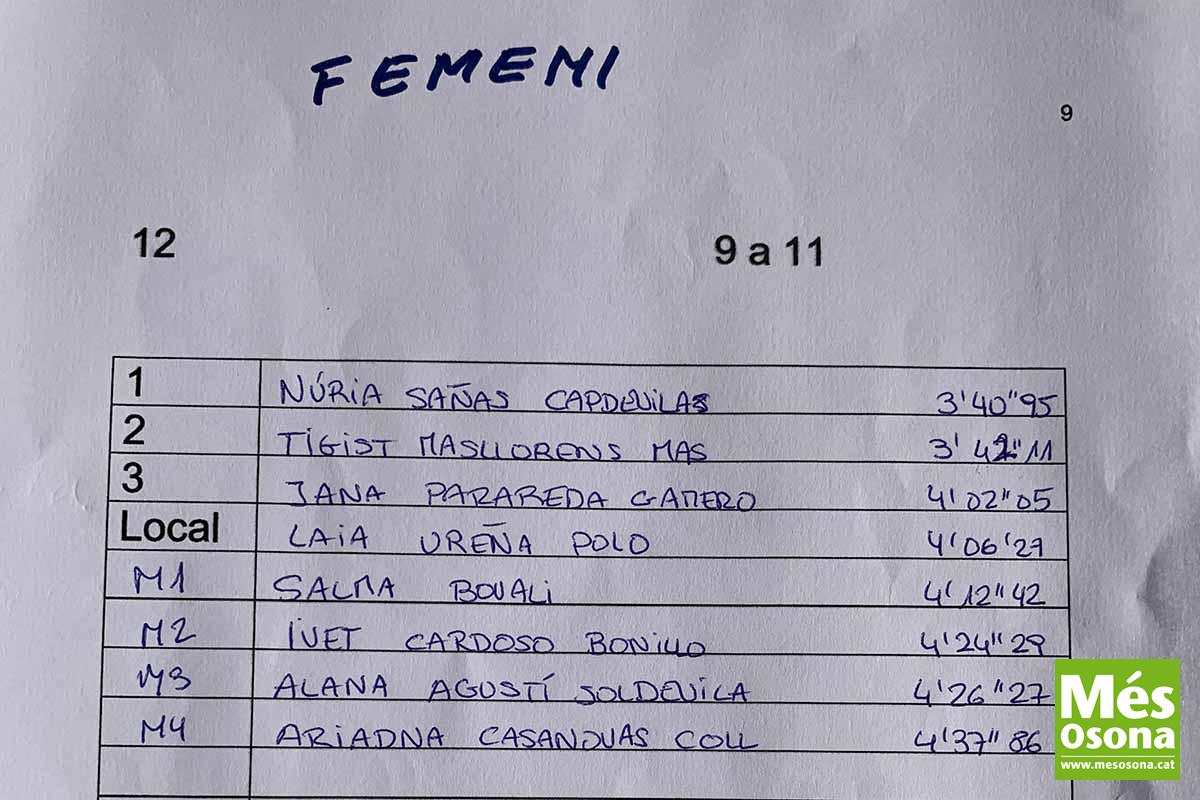 FEMENI
9
12 9 a 11
1 NÚRIA SAÑAS CAPDEVILAS 3'40"95
2 TIGIST MASLLORENS MAS 3'42"11
3 JANA PARAREDA GAMERO 4'02"05
Local LAIA UREÑA POLO 4'06'27
M1 SALMA BOUALI 4'12"42
M2 IVET CARDOSO BONILLO 4'24"29
M3 ALANA AGUSTÍ SOLDEVILA 4'26"27
M4 ARIADNA CASANOVAS COLL 4'37"86
Més
Osona
www.mesosona.cat